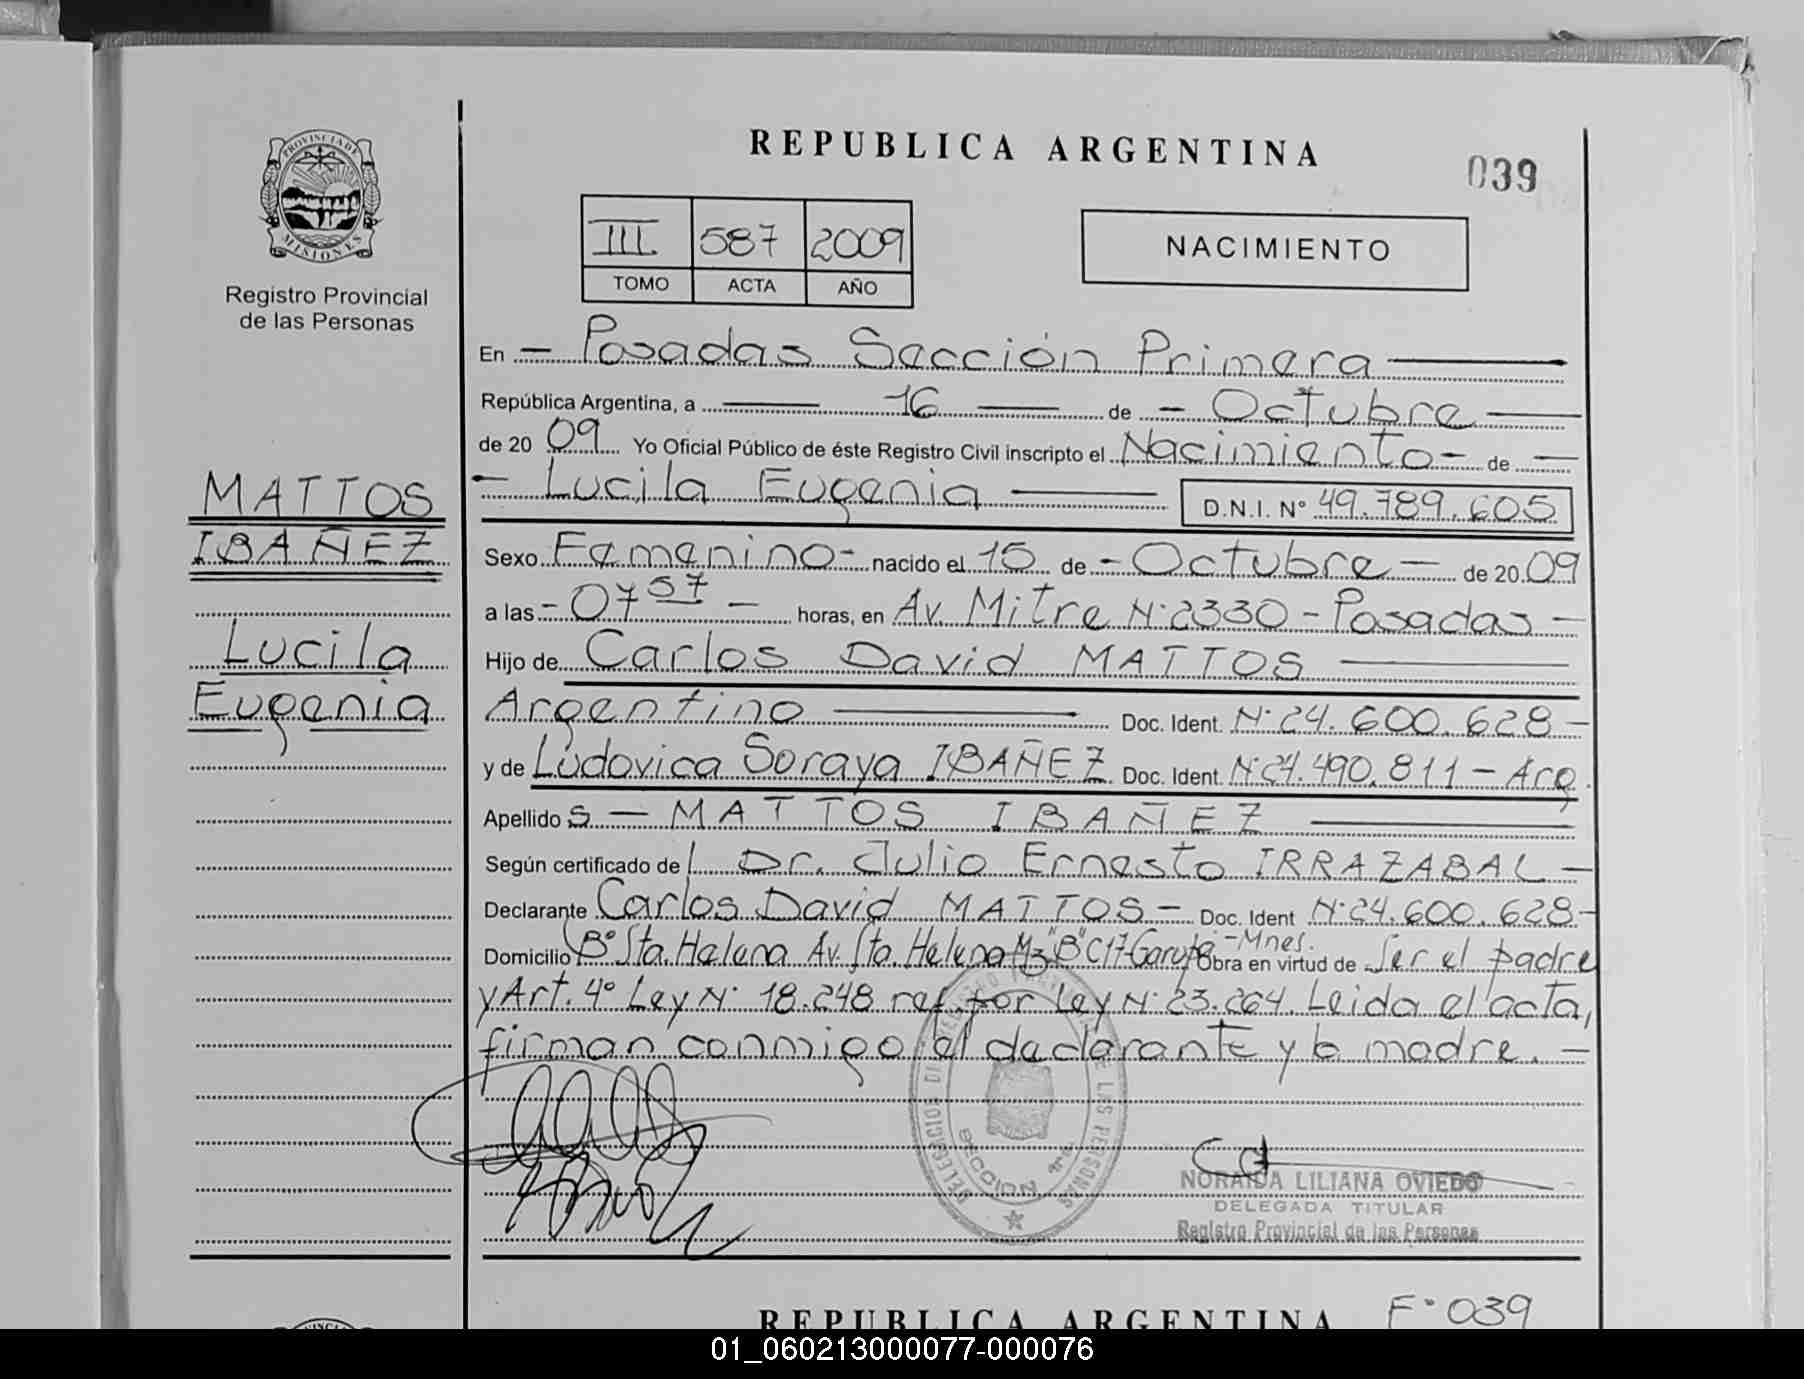 PROVINCIA DE
MISIONES
Registro Provincial
de las Personas
MATTOS
IBAÑEZ
Lucila
Eugenia
REPUBLICA ARGENTINA
039
III 587 2009
TOMO ACTA AÑO
NACIMIENTO
En - Posadas Sección Primera
República Argentina, a 16 de - Octubre
de 20 09 Yo Oficial Público de éste Registro Civil inscripto el Nacimiento - de -
- Lucila Eugenia D.N.I. N° 49.789.605
Sexo Femenino - nacido el 15 de - Octubre - de 20 09
a las - 07 57 - horas, en Av. Mitre N° 2330 - Posadas -
Hijo de Carlos David MATTOS
Argentino Doc. Ident. N° 24.600.628 -
y de Ludovica Soraya IBAÑEZ Doc. Ident. N° 24.490.811 - Arg.
Apellido s - MATTOS IBAÑEZ
Según certificado del Dr. Julio Ernesto IRRAZABAL -
Declarante Carlos David MATTOS - Doc. Ident N° 24.600.628 -
Domicilio B° Sta. Helena Av. Sta. Helena Mz "B" C17 - Garupá - Mnes. Obra en virtud de Ser el padre
y Art. 4° Ley N° 18.248 ref. por Ley N° 23.264. Leida el acta,
firman conmigo el declarante y la madre. -
DELEGACION DEL REGISTRO PROVINCIAL DE LAS PERSONAS
SECCION 1ra.
NORAIDA LILIANA OVIEDO
DELEGADA TITULAR
Registro Provincial de las Personas
REPUBLICA ARGENTINA F° 039
01_060213000077-000076